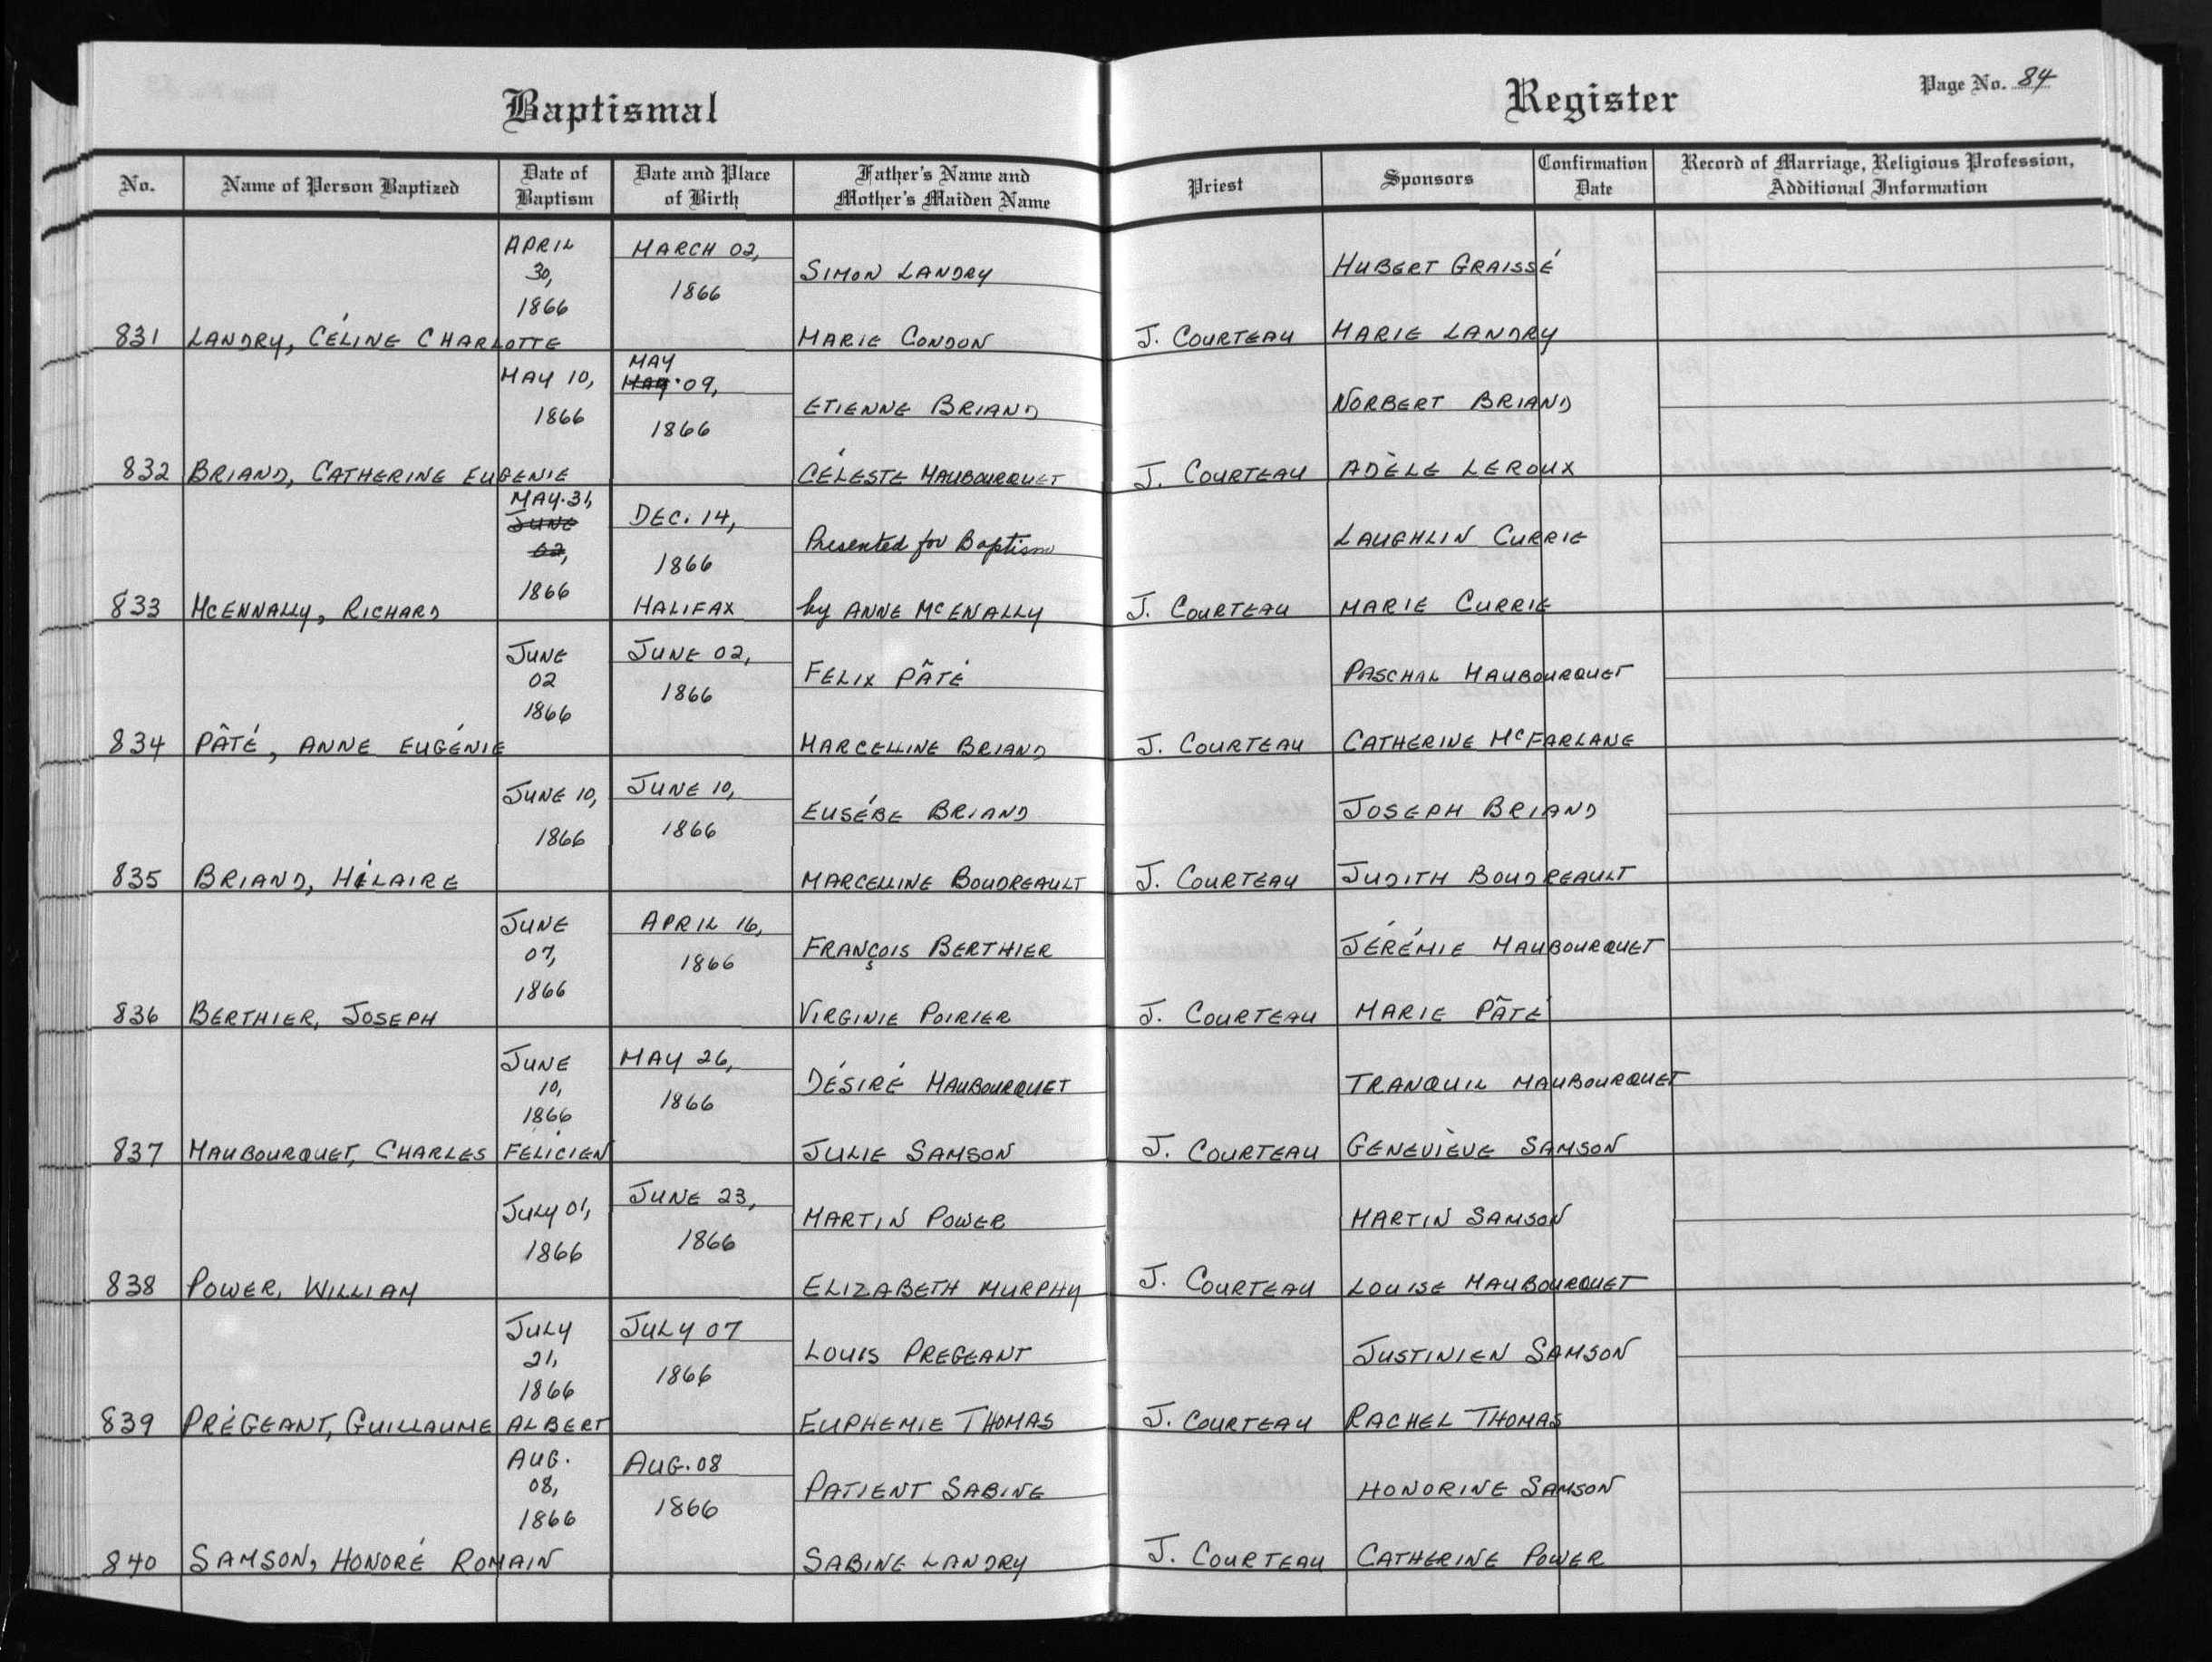 Baptismal
Register
Page No. 84
No.
Name of Person Baptized
Date of
Baptism
Date and Place
of Birth
Father's Name and
Mother's Maiden Name
Priest
Sponsors
Confirmation
Date
Record of Marriage, Religious Profession,
Additional Information
831 LANDRY, CÉLINE CHARLOTTE
APRIL
30,
1866
MARCH 02,
1866
SIMON LANDRY
MARIE CONDON
J. COURTEAU
HUBERT GRAISSÉ
MARIE LANDRY
832 BRIAND, CATHERINE EUGENIE
MAY 10,
1866
MAY
MAY 09,
1866
ETIENNE BRIAND
CÉLESTE MAUBOURQUET
J. COURTEAU
NORBERT BRIAND
ADÈLE LEROUX
833 McENNALLY, RICHARD
MAY 31,
JUNE
02,
1866
DEC. 14,
1866
HALIFAX
Presented for Baptism
by ANNE McENALLY
J. COURTEAU
LAUGHLIN CURRIE
MARIE CURRIE
834 PÂTÉ, ANNE EUGÉNIE
JUNE
02
1866
JUNE 02,
1866
FELIX PÂTÉ
MARCELLINE BRIAND
J. COURTEAU
PASCHAL MAUBOURQUET
CATHERINE McFARLANE
835 BRIAND, HILAIRE
JUNE 10,
1866
JUNE 10,
1866
EUSÉBE BRIAND
MARCELLINE BOUDREAULT
J. COURTEAU
JOSEPH BRIAND
JUDITH BOUDREAULT
836 BERTHIER, JOSEPH
JUNE
07,
1866
APRIL 16,
1866
FRANÇOIS BERTHIER
VIRGINIE POIRIER
J. COURTEAU
JÉRÉMIE MAUBOURQUET
MARIE PÂTÉ
837 MAUBOURQUET, CHARLES FÉLICIEN
JUNE
10,
1866
MAY 26,
1866
DÉSIRÉ MAUBOURQUET
JULIE SAMSON
J. COURTEAU
TRANQUIL MAUBOURQUET
GENEVIÈVE SAMSON
838 POWER, WILLIAM
JULY 01,
1866
JUNE 23,
1866
MARTIN POWER
ELIZABETH MURPHY
J. COURTEAU
MARTIN SAMSON
LOUISE MAUBOURQUET
839 PRÉGEANT, GUILLAUME ALBERT
JULY
21,
1866
JULY 07
1866
LOUIS PREGEANT
EUPHEMIE THOMAS
J. COURTEAU
JUSTINIEN SAMSON
RACHEL THOMAS
840 SAMSON, HONORÉ ROMAIN
AUG.
08,
1866
AUG. 08
1866
PATIENT SABINE
SABINE LANDRY
J. COURTEAU
HONORINE SAMSON
CATHERINE POWER